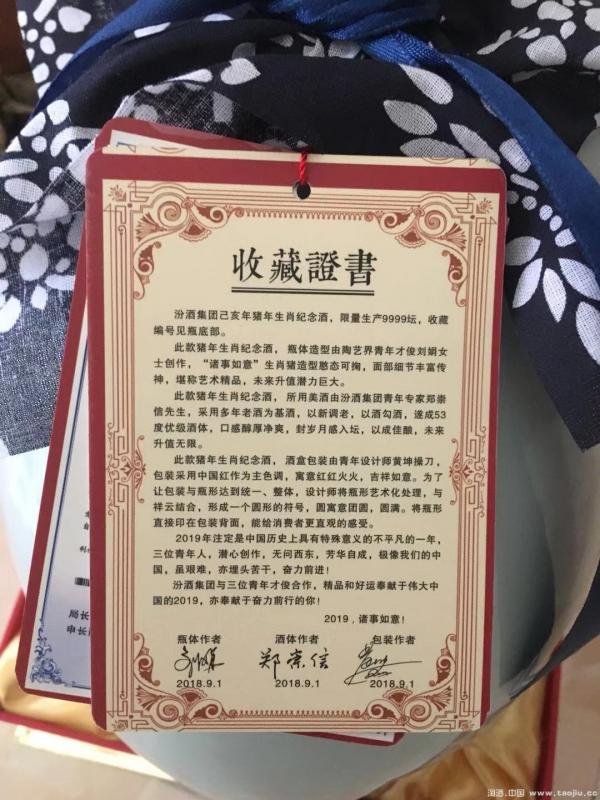 收藏證書
汾酒集团己亥年猪年生肖纪念酒，限量生产9999坛，收藏
编号见瓶底部。
此款猪年生肖纪念酒，瓶体造型由陶艺界青年才俊刘娟女
士创作，“诸事如意”生肖猪造型憨态可掬，面部细节丰富传
神，堪称艺术精品，未来升值潜力巨大。
此款猪年生肖纪念酒，所用美酒由汾酒集团青年专家郑崇
信先生，采用多年老酒为基酒，以新调老，以酒勾酒，遂成53
度优级酒体，口感醇厚净爽，封岁月感入坛，以成佳酿，未来
升值无限。
此款猪年生肖纪念酒，酒盒包装由青年设计师黄坤操刀，
包装采用中国红作为主色调，寓意红红火火，吉祥如意。为了
让包装与瓶形达到统一、整体，设计师将瓶形艺术化处理，与
祥云结合，形成一个圆形的符号，圆寓意团圆，圆满。将瓶形
直接印在包装背面，能给消费者更直观的感受。
2019年注定是中国历史上具有特殊意义的不平凡的一年，
三位青年人，潜心创作，无问西东，芳华自成，极像我们的中
国，虽艰难，亦埋头苦干，奋力前进！
汾酒集团与三位青年才俊合作，精品和好运奉献于伟大中
国的2019，亦奉献于奋力前行的你！
2019，诸事如意！
瓶体作者 酒体作者 包装作者
郑崇信
2018.9.1 2018.9.1 2018.9.1
局长
申长
淘酒.中国 www.taojiu.cc